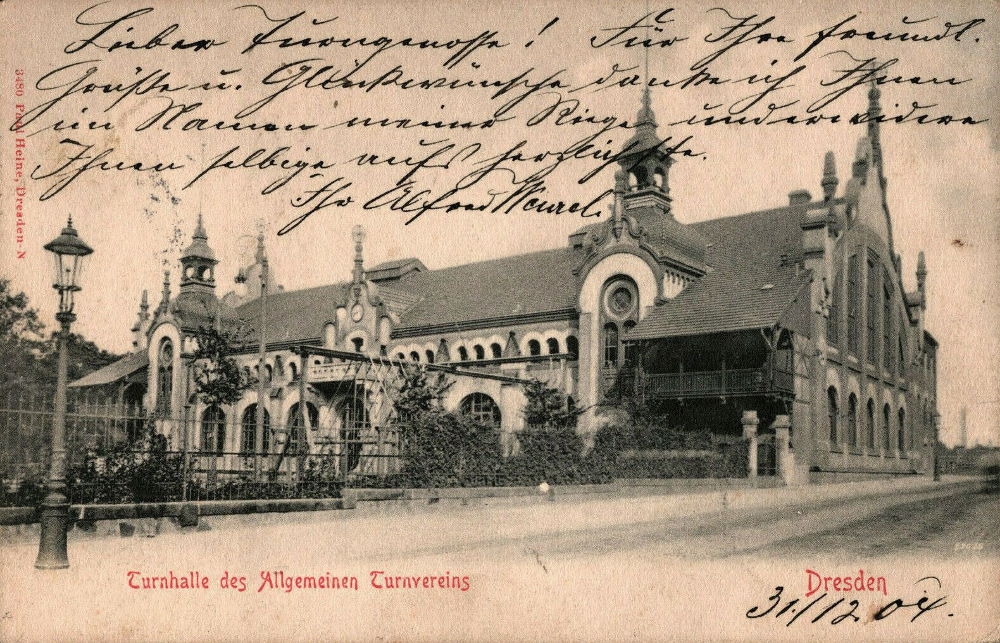 Lieber Turngenosse! Für Ihre freundl.
Grüße u. Glückwünsche danke ich Ihnen
im Namen meiner Riege und erwidere
Ihnen selbige aufs herzlichste.
Ihr Alfred
3480 Paul Heine, Dresden-N
Turnhalle des Allgemeinen Turnvereins
Dresden
31/12 04.